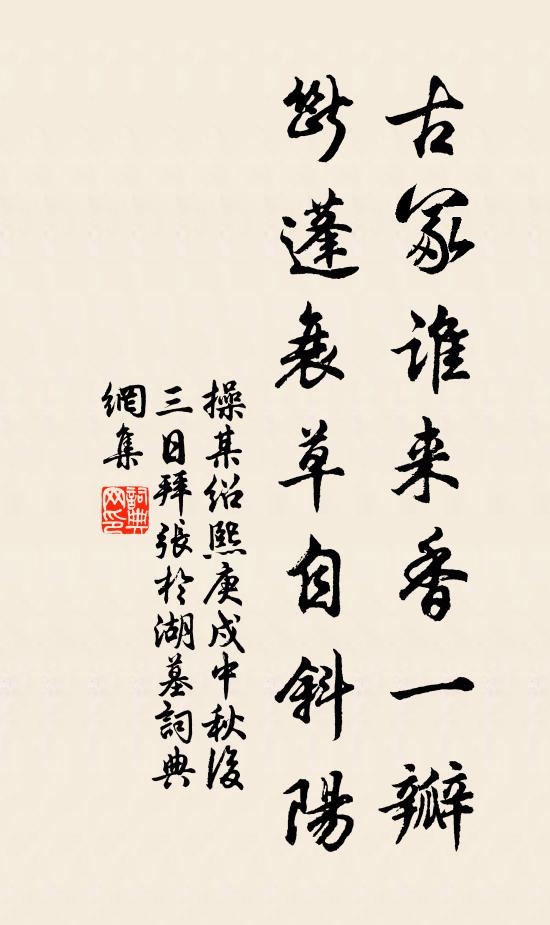 古冢谁来香一瓣
断蓬衰草自斜陽
操某绍熙庚戌中秋後
三日拜張於湖墓詞典
網集
詞典
网印